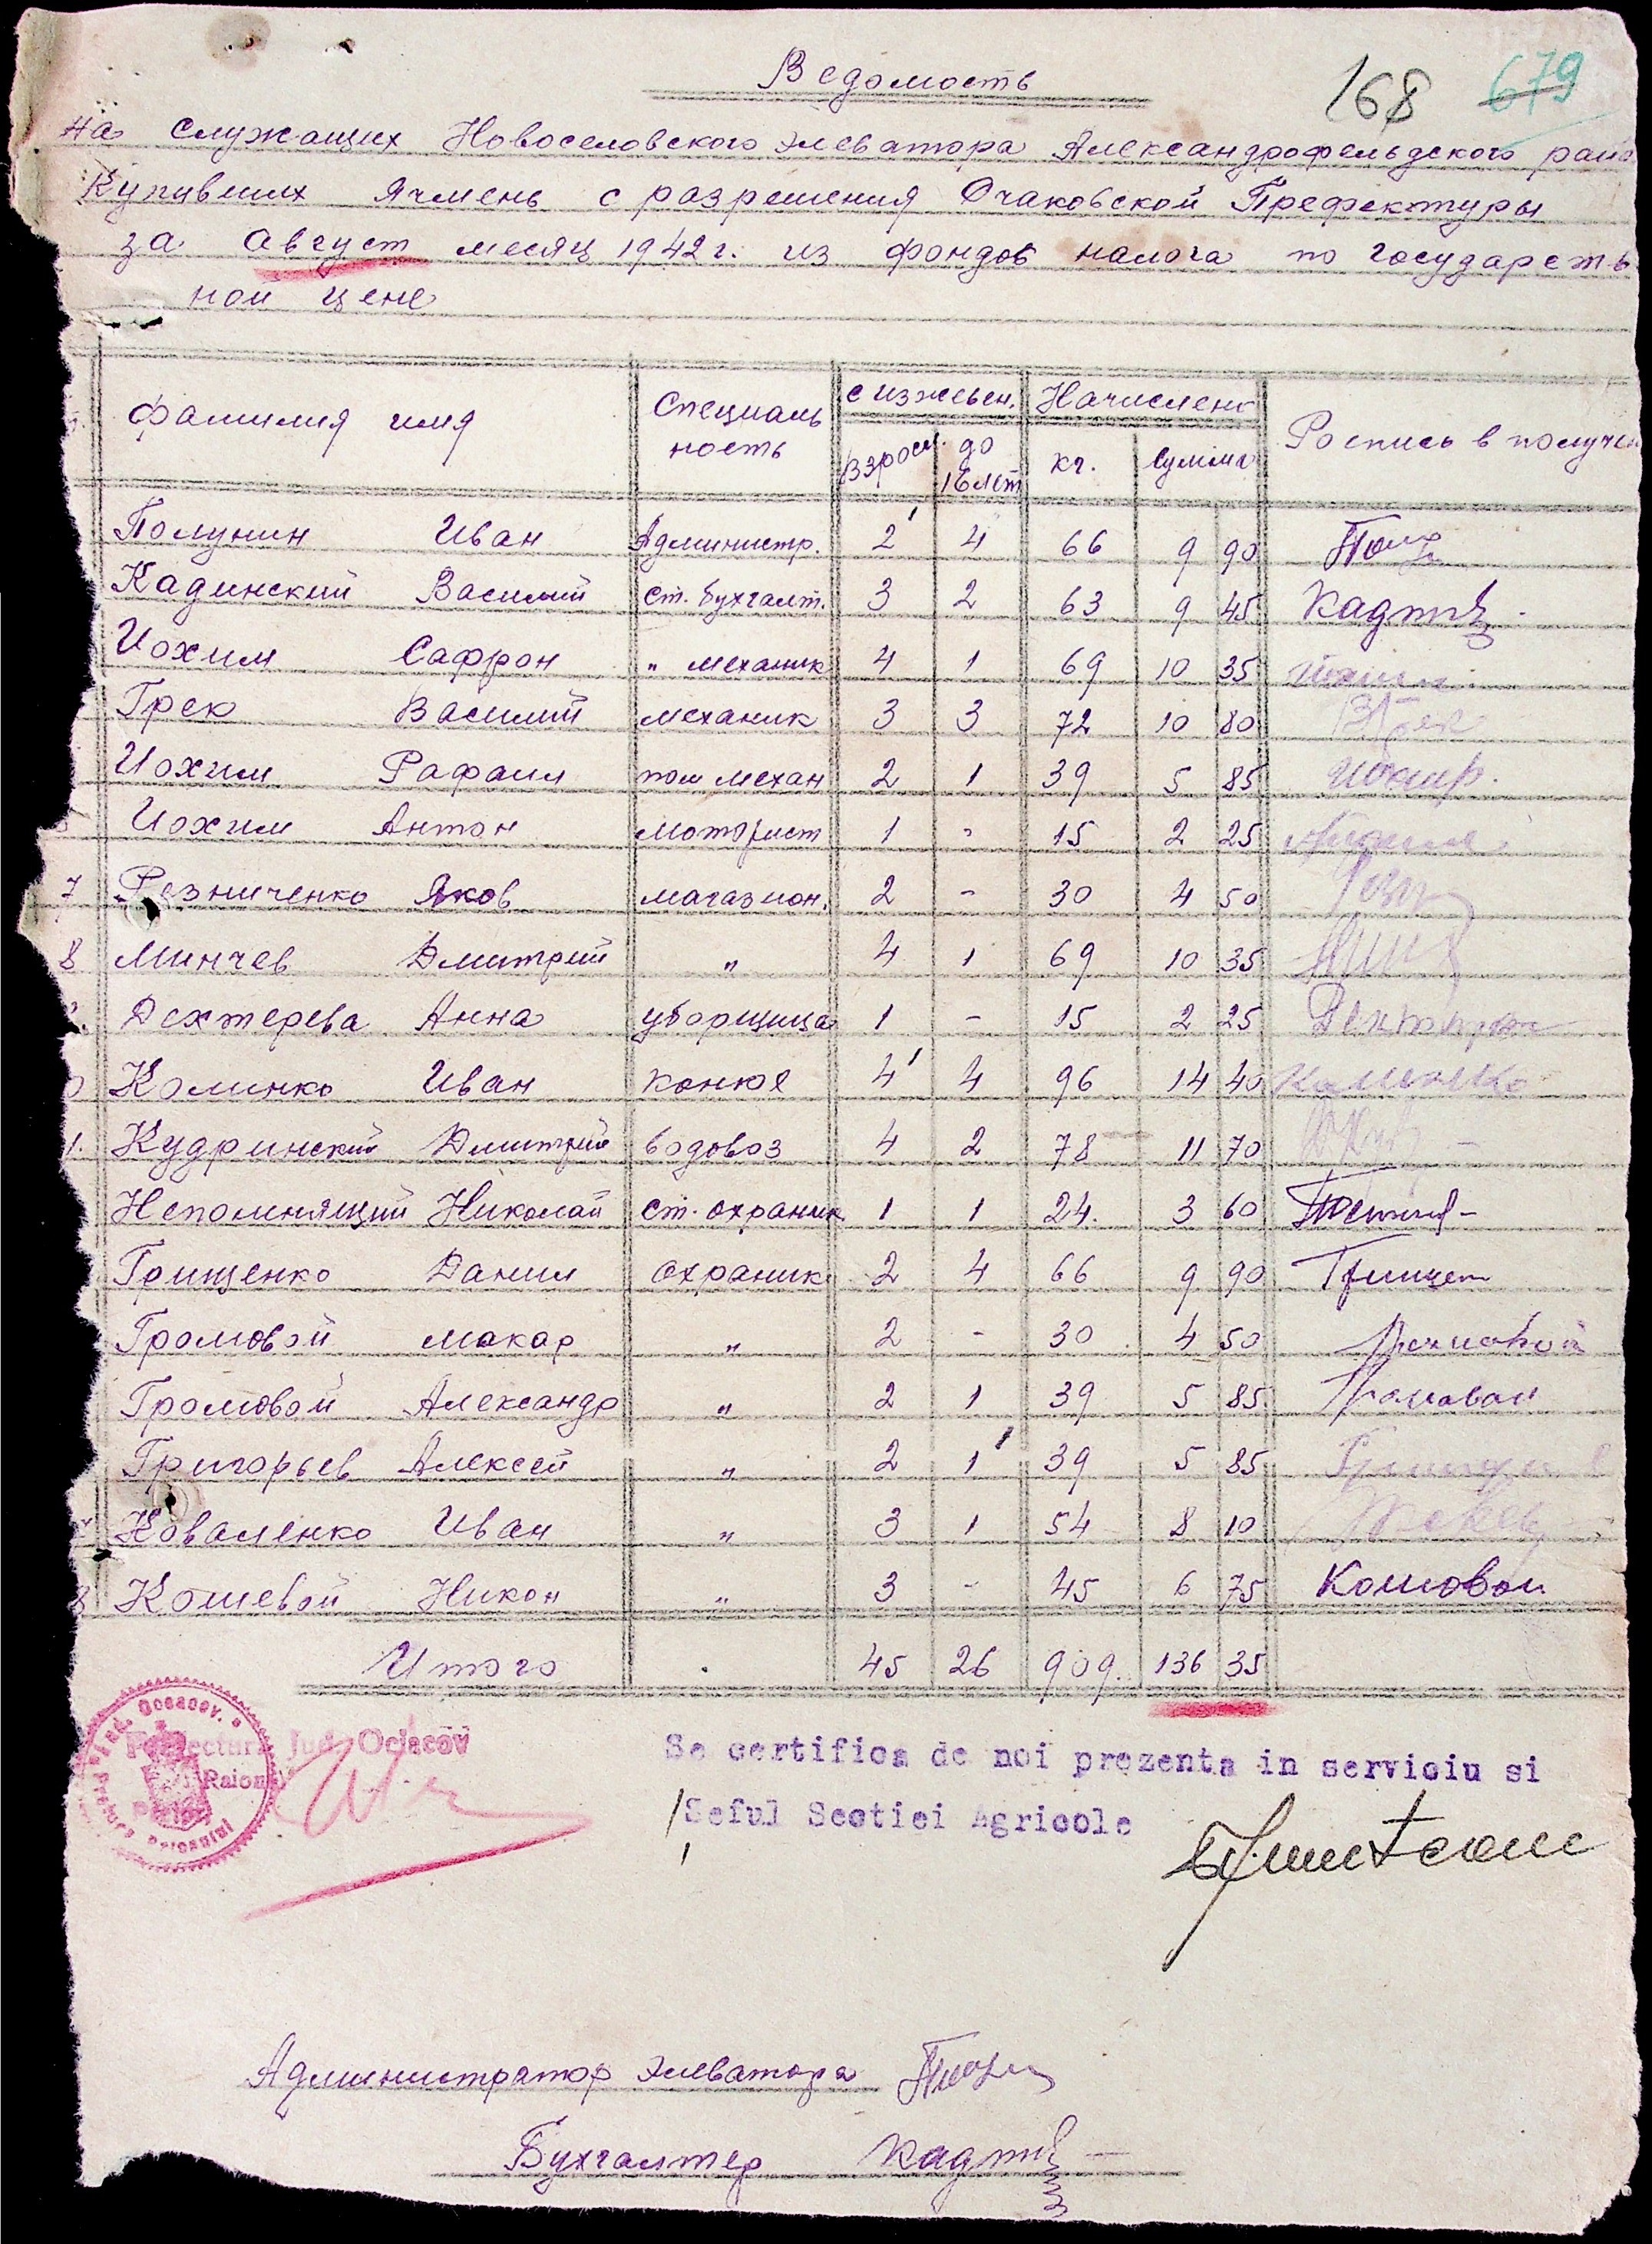 Ведомость
168 679
на служащих Новоселовского элеватора Александрофельдского райо
купивших ячмень с разрешения Очаковской Префектуры
за август месяц 1942 г. из фондов налога по государств
ной цене
фамилия имя Специаль с иждевен. Начислено Роспись в получен
ность взросл. до 16 лет кг. сумма
Полунин Иван Администр. 2 4 66 9 90
Кадинский Василий ст. бухгалт. 3 2 63 9 45
Иохим Сафрон " механик 4 1 69 10 35 Иохим
Грек Василий механик 3 3 72 10 80 ВГрек
Иохим Рафаил пом механ 2 1 39 5 85
Иохим Антон моторист 1 - 15 2 25
7 Резниченко Яков магазион. 2 - 30 4 50 Резн
8 Минчев Дмитрий " 4 1 69 10 35
Дехтерева Анна уборщица 1 - 15 2 25
Калинко Иван конюх 4 4 96 14 40 Калинко
1. Кудринский Дмитрий водовоз 4 2 78 11 70
Непомнящий Николай ст. охраник 1 1 24. 3 60
Грищенко Данил охраник 2 4 66 9 90 Грищен
Громовой Макар " 2 - 30 4 50 Громовой
Громовой Александр " 2 1 39 5 85 Громовой
Григорьев Алексей " 2 1 39 5 85
Коваленко Иван " 3 1 54 8 10
8 Кошевой Никон " 3 - 45 6 75 Кошовой
Итого 45 26 909. 136 35
Prefectura Jud. Ociacov
Se certifica de noi prezenta in serviciu si
Seful Sectiei Agricole
Администратор элеватора
Бухгалтер